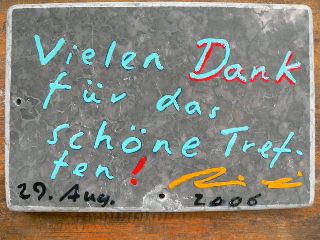 Vielen Dank
für das
schöne Tref-
fen!
29. Aug. 2006